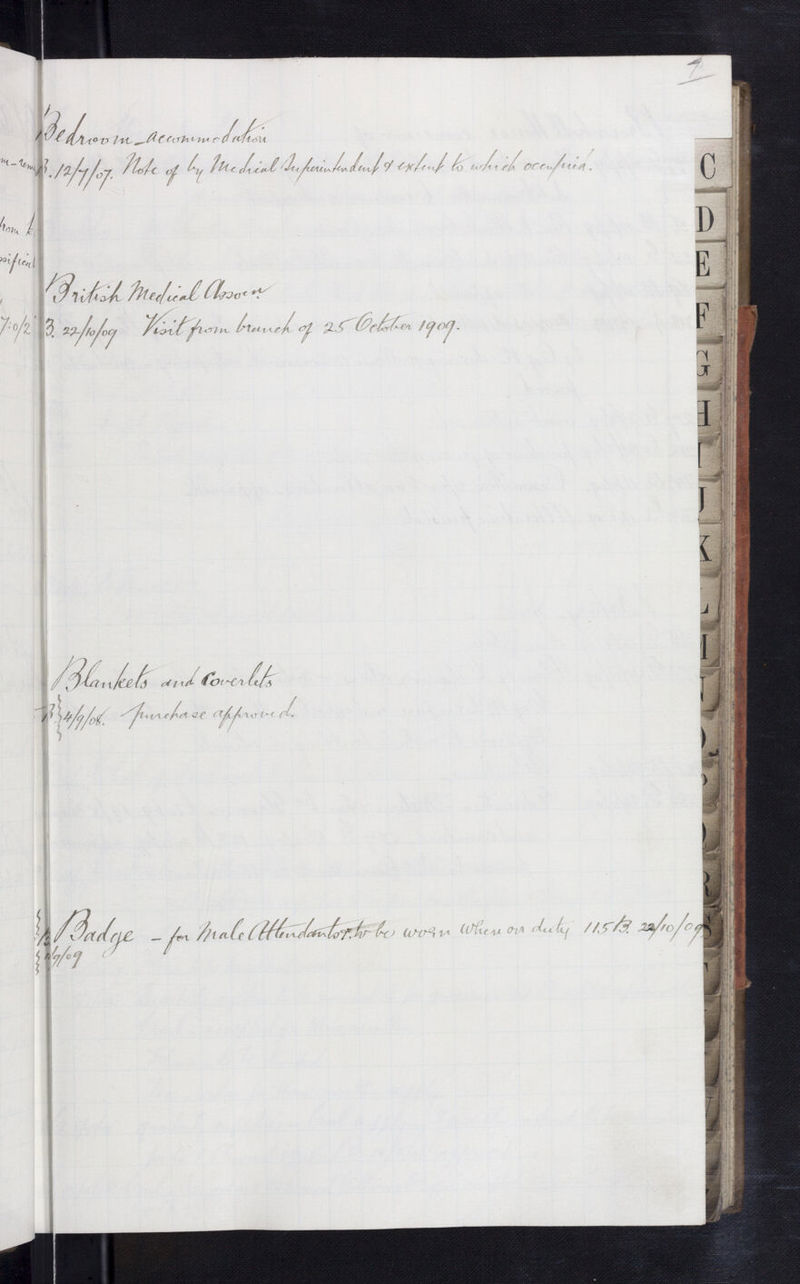 9
Bedroom-accommodation
B. 12/7/07. Note of by Medical Superintendent & extent to which occupied.
British Medical Assocn.
B. 22/10/09 Visit from branch of 25 October 1909.
Blankets and Coverlets
B 4/9/08. purchase approved.
Badge - for Male Attendants to be worn when on duty 115 B. 22/10/09
/7/09
C
D
E
F
G
H
I
J
K
L
M
N
O
P
Q
R
S
T